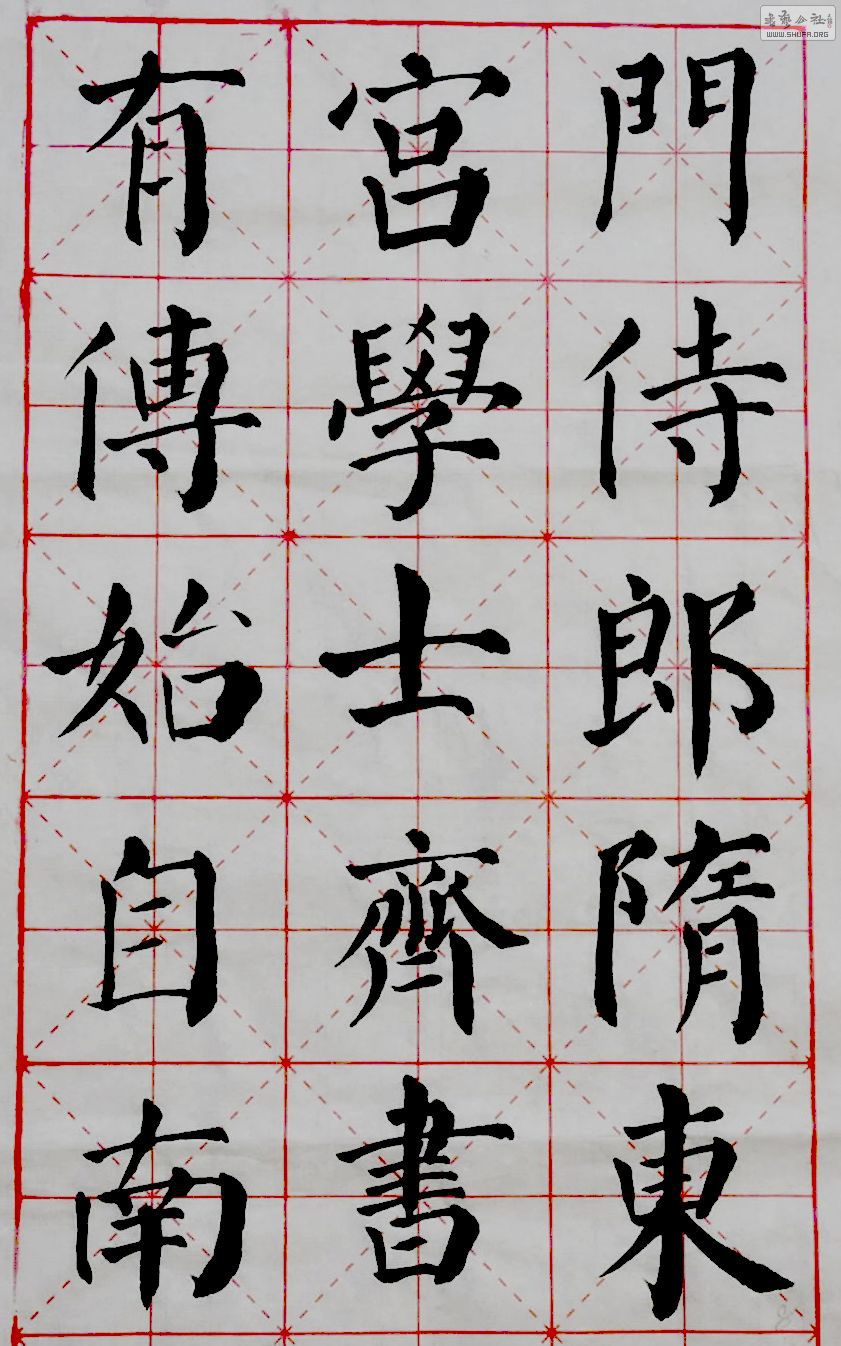 門侍郎隋東
宮學士齊書
有傳始自南
WWW.SHUFA.ORG